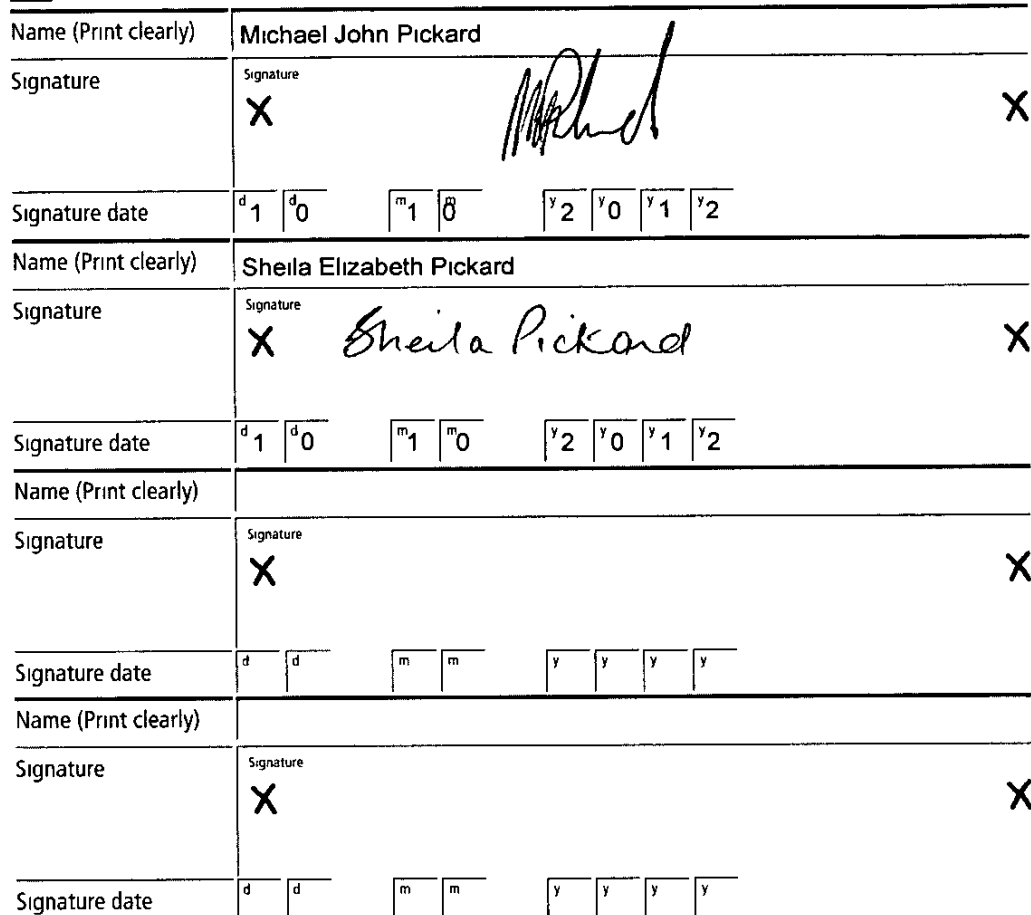 Name (Print clearly) Michael John Pickard
Signature Signature
X X
Signature date d1 d0 m1 m0 y2 y0 y1 y2
Name (Print clearly) Sheila Elizabeth Pickard
Signature Signature
X Sheila Pickard X
Signature date d1 d0 m1 m0 y2 y0 y1 y2
Name (Print clearly)
Signature Signature
X X
Signature date d d m m y y y y
Name (Print clearly)
Signature Signature
X X
Signature date d d m m y y y y